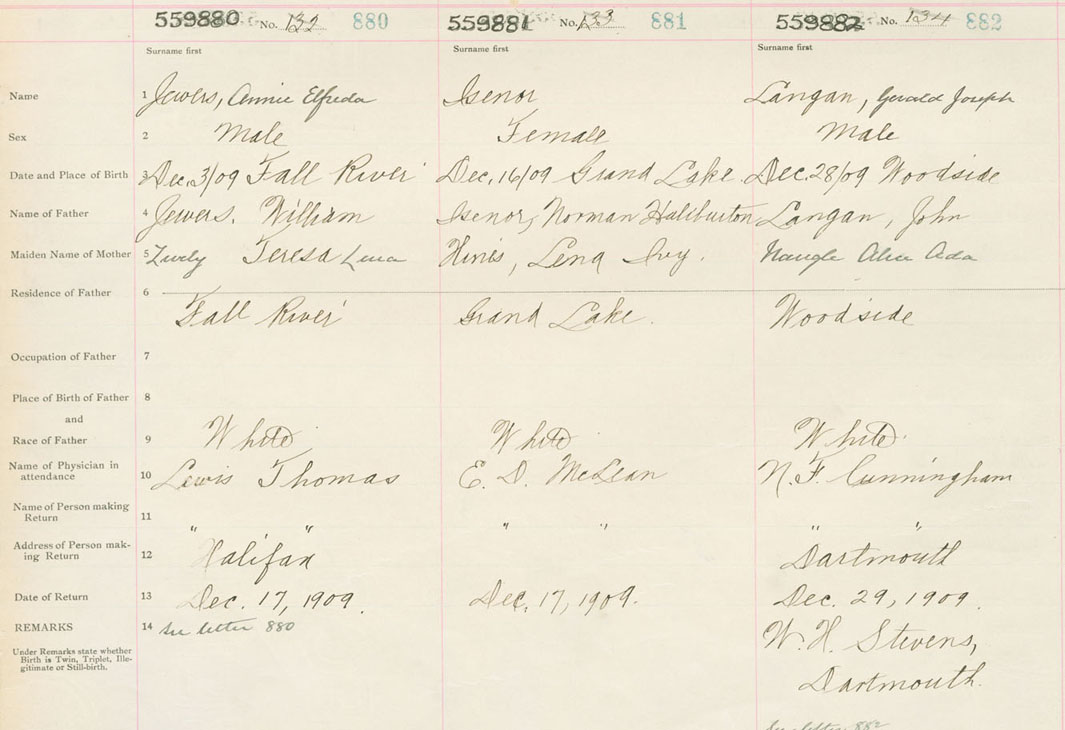 559880 No. 132 880 559881 No. 133 881 559882 No. 134 882
Surname first Surname first Surname first
Name 1 Jewers, Annie Elfreda Isenor Langan, Gerald Joseph
Sex 2 Male Female Male
Date and Place of Birth 3 Dec. 3/09 Fall River Dec. 16/09 Grand Lake. Dec. 28/09 Woodside
Name of Father 4 Jewers. William Isenor, Norman Haliburton Langan, John
Maiden Name of Mother 5 Teresa Lena Ivy. Nangle Alice Ada
Residence of Father 6
Fall River Grand Lake. Woodside
Occupation of Father 7
Place of Birth of Father 8
and
Race of Father 9 White White White.
Name of Physician in
attendance 10 Lewis Thomas E. D. McLean N. F. Cunningham
Name of Person making
Return 11 " " " " " "
Address of Person mak-
ing Return 12 Halifax Dartmouth
Date of Return 13 Dec. 17, 1909. Dec. 17, 1909. Dec. 29, 1909.
REMARKS 14 See letter 880 W. H. Stevens,
Under Remarks state whether
Birth is Twin, Triplet, Ille-
gitimate or Still-birth.
Dartmouth.
See letter 882